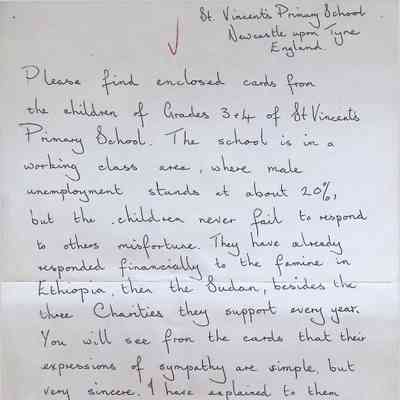 St. Vincent's Primary School
Newcastle upon Tyne
England.
Please find enclosed cards from
the children of Grades 3+4 of St Vincents
Primary School. The school is in a
working class area, where male
unemployment stands at about 20%,
but the children never fail to respond
to others misfortune. They have already
responded financially to the famine in
Ethiopia, then the Sudan, besides the
three Charities they support every year.
You will see from the cards that their
expressions of sympathy are simple, but
very sincere. I have explained to them